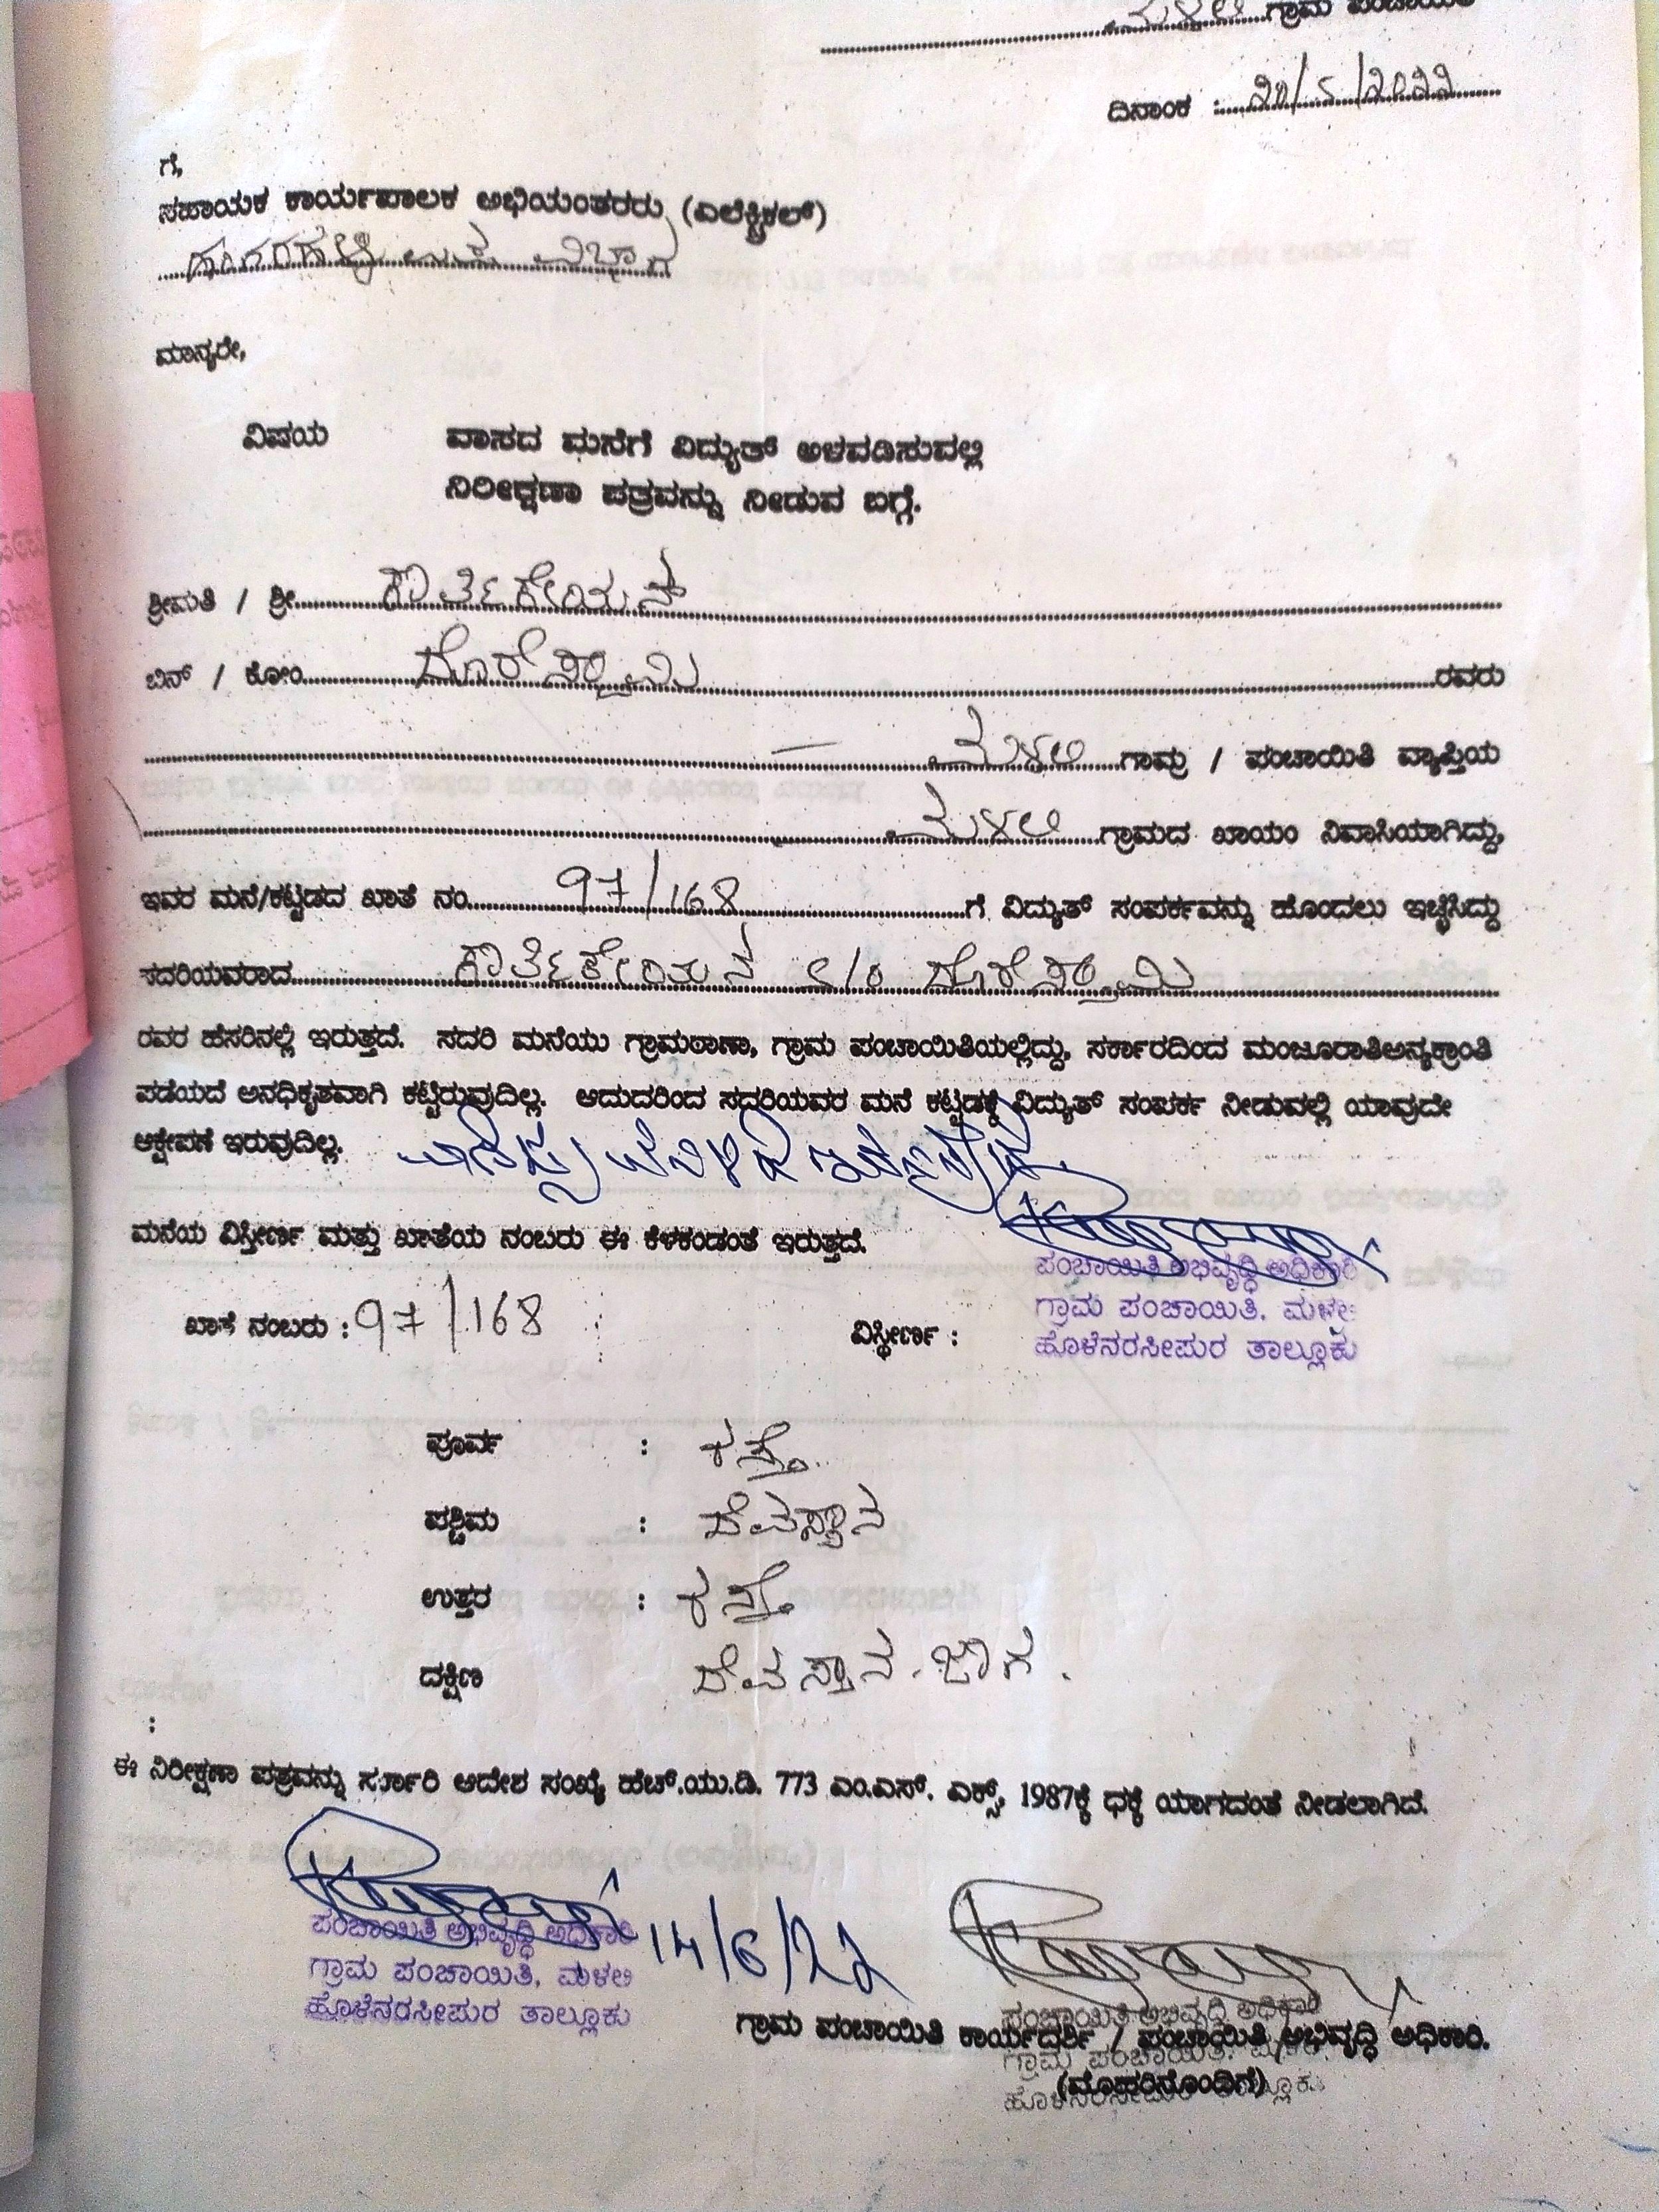 ಮಳಲಿ ಗ್ರಾಮ ಪಂಚಾಯಿತಿ
ದಿನಾಂಕ : /5/2022
ಗೆ,
ಸಹಾಯಕ ಕಾರ್ಯಪಾಲಕ ಅಭಿಯಂತರರು (ಎಲೆಕ್ಟ್ರಿಕಲ್)
ವಿಭಾಗ
ಮಾನ್ಯರೇ,
ವಿಷಯ ವಾಸದ ಮನೆಗೆ ವಿದ್ಯುತ್ ಅಳವಡಿಸುವಲ್ಲಿ
ನಿರೀಕ್ಷಣಾ ಪತ್ರವನ್ನು ನೀಡುವ ಬಗ್ಗೆ.
ಶ್ರೀಮತಿ / ಶ್ರೀ ಕಾರ್ತಿಕೇಯನ್
ಬಿನ್ / ಕೋಂ ದೊರೆಸ್ವಾಮಿ ರವರು
ಮಳಲಿ ಗಾಮ್ರ / ಪಂಚಾಯಿತಿ ವ್ಯಾಪ್ತಿಯ
ಮಳಲಿ ಗ್ರಾಮದ ಖಾಯಂ ನಿವಾಸಿಯಾಗಿದ್ದು,
ಇವರ ಮನೆ/ಕಟ್ಟಡದ ಖಾತೆ ನಂ 97/168 ಗೆ ವಿದ್ಯುತ್ ಸಂಪರ್ಕವನ್ನು ಹೊಂದಲು ಇಚ್ಛಿಸಿದ್ದು
ಸದರಿಯವರಾದ ಕಾರ್ತಿಕೇಯನ್ S/o ದೊರೆಸ್ವಾಮಿ
ರವರ ಹೆಸರಿನಲ್ಲಿ ಇರುತ್ತದೆ. ಸದರಿ ಮನೆಯು ಗ್ರಾಮಠಾಣಾ, ಗ್ರಾಮ ಪಂಚಾಯಿತಿಯಲ್ಲಿದ್ದು, ಸರ್ಕಾರದಿಂದ ಮಂಜೂರಾತಿಅನ್ಯಕ್ರಾಂತಿ
ಪಡೆಯದೆ ಅನಧಿಕೃತವಾಗಿ ಕಟ್ಟಿರುವುದಿಲ್ಲ. ಆದುದರಿಂದ ಸದರಿಯವರ ಮನೆ ಕಟ್ಟಡಕ್ಕೆ ವಿದ್ಯುತ್ ಸಂಪರ್ಕ ನೀಡುವಲ್ಲಿ ಯಾವುದೇ
ಆಕ್ಷೇಪಣೆ ಇರುವುದಿಲ್ಲ.
ಮನೆಯ ವಿಸ್ತೀರ್ಣ ಮತ್ತು ಖಾತೆಯ ನಂಬರು ಈ ಕೆಳಕಂಡಂತೆ ಇರುತ್ತದೆ.
ಪಂಚಾಯಿತಿ ಅಭಿವೃದ್ಧಿ ಅಧಿಕಾರಿ
ಗ್ರಾಮ ಪಂಚಾಯಿತಿ, ಮಳಲಿ
ಹೊಳೆನರಸೀಪುರ ತಾಲ್ಲೂಕು
ಖಾತೆ ನಂಬರು : 97/168 ವಿಸ್ಥೀರ್ಣ :
ಪೂರ್ವ : ರಸ್ತೆ
ಪಶ್ಚಿಮ : ದೇವಸ್ಥಾನ
ಉತ್ತರ : ರಸ್ತೆ
ದಕ್ಷಿಣ ದೇವಸ್ತಾನ ಜಾಗ.
:
ಈ ನಿರೀಕ್ಷಣಾ ಪತ್ರವನ್ನು ಸರ್ಕಾರಿ ಆದೇಶ ಸಂಖ್ಯೆ ಹೆಚ್.ಯು.ಡಿ. 773 ಎಂ.ಎಸ್. ಎಕ್ಸ್, 1987ಕ್ಕೆ ಧಕ್ಕೆ ಯಾಗದಂತೆ ನೀಡಲಾಗಿದೆ.
ಪಂಚಾಯಿತಿ ಅಭಿವೃದ್ಧಿ ಅಧಿಕಾರಿ
ಗ್ರಾಮ ಪಂಚಾಯಿತಿ, ಮಳಲಿ
ಹೊಳೆನರಸೀಪುರ ತಾಲ್ಲೂಕು
14/6/22
ಪಂಚಾಯಿತಿ ಅಭಿವೃದ್ಧಿ ಅಧಿಕಾರಿ
ಗ್ರಾಮ ಪಂಚಾಯಿತಿ ಕಾರ್ಯದರ್ಶಿ / ಪಂಚಾಯಿತಿ ಅಭಿವೃದ್ಧಿ ಅಧಿಕಾರಿ.
ಗ್ರಾಮ ಪಂಚಾಯಿತಿ,
(ಮೊಹರಿನೊಂದಿಗೆ)